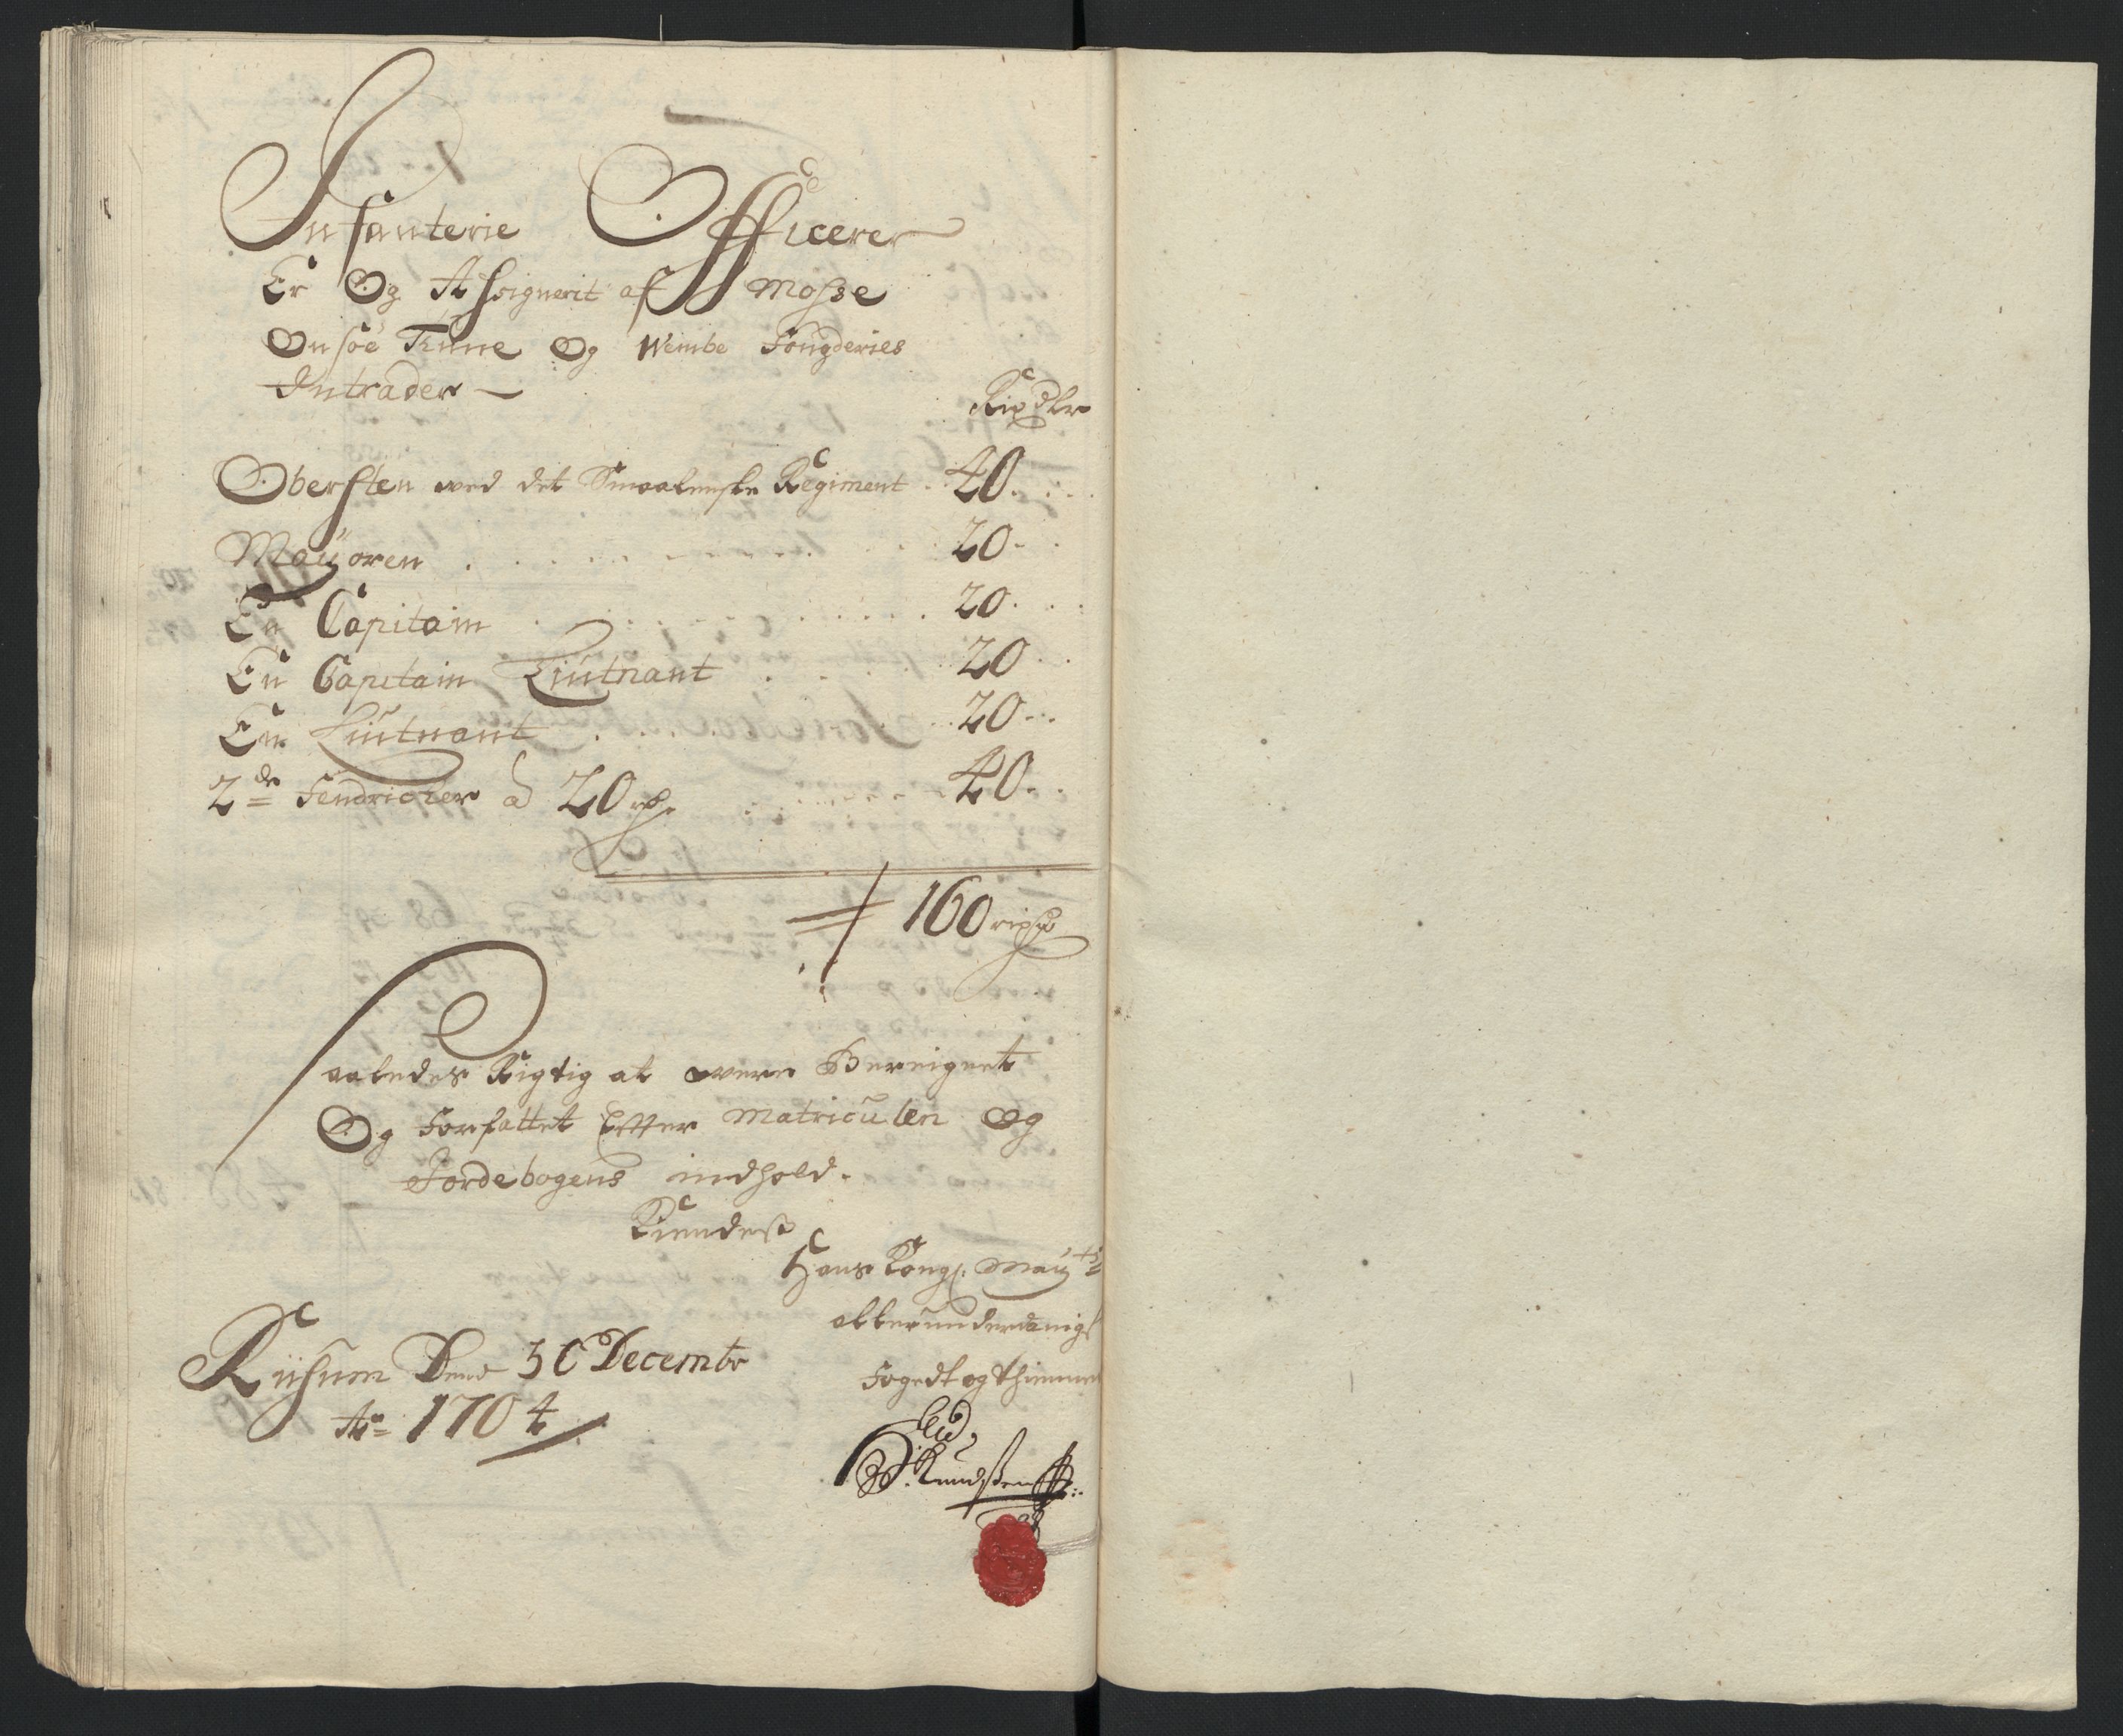 Infanterie Officerer
Er Og Assignerit af Mosse
Onsöe Tüne Og Wembe Fougderies
Intrader —
Rixdlr
Obersten wed det Smaalenske Regiment 40
Mayoren 20
En Capitain 20
En Capitain Liutnant 20
En Liutnant 20
2de Fendricher a 20 rdr 40
160 rixdr
Saaledes Rigtig at were Bereignet
Og Forfattet Effter Matriculen Og
Jordebogens indhold.
Kiendest
Hans Kongl. Mayts
allerunderdanigst
Fogedt og thienner
Knudssen
Den 30 Decembr
Ao 1704